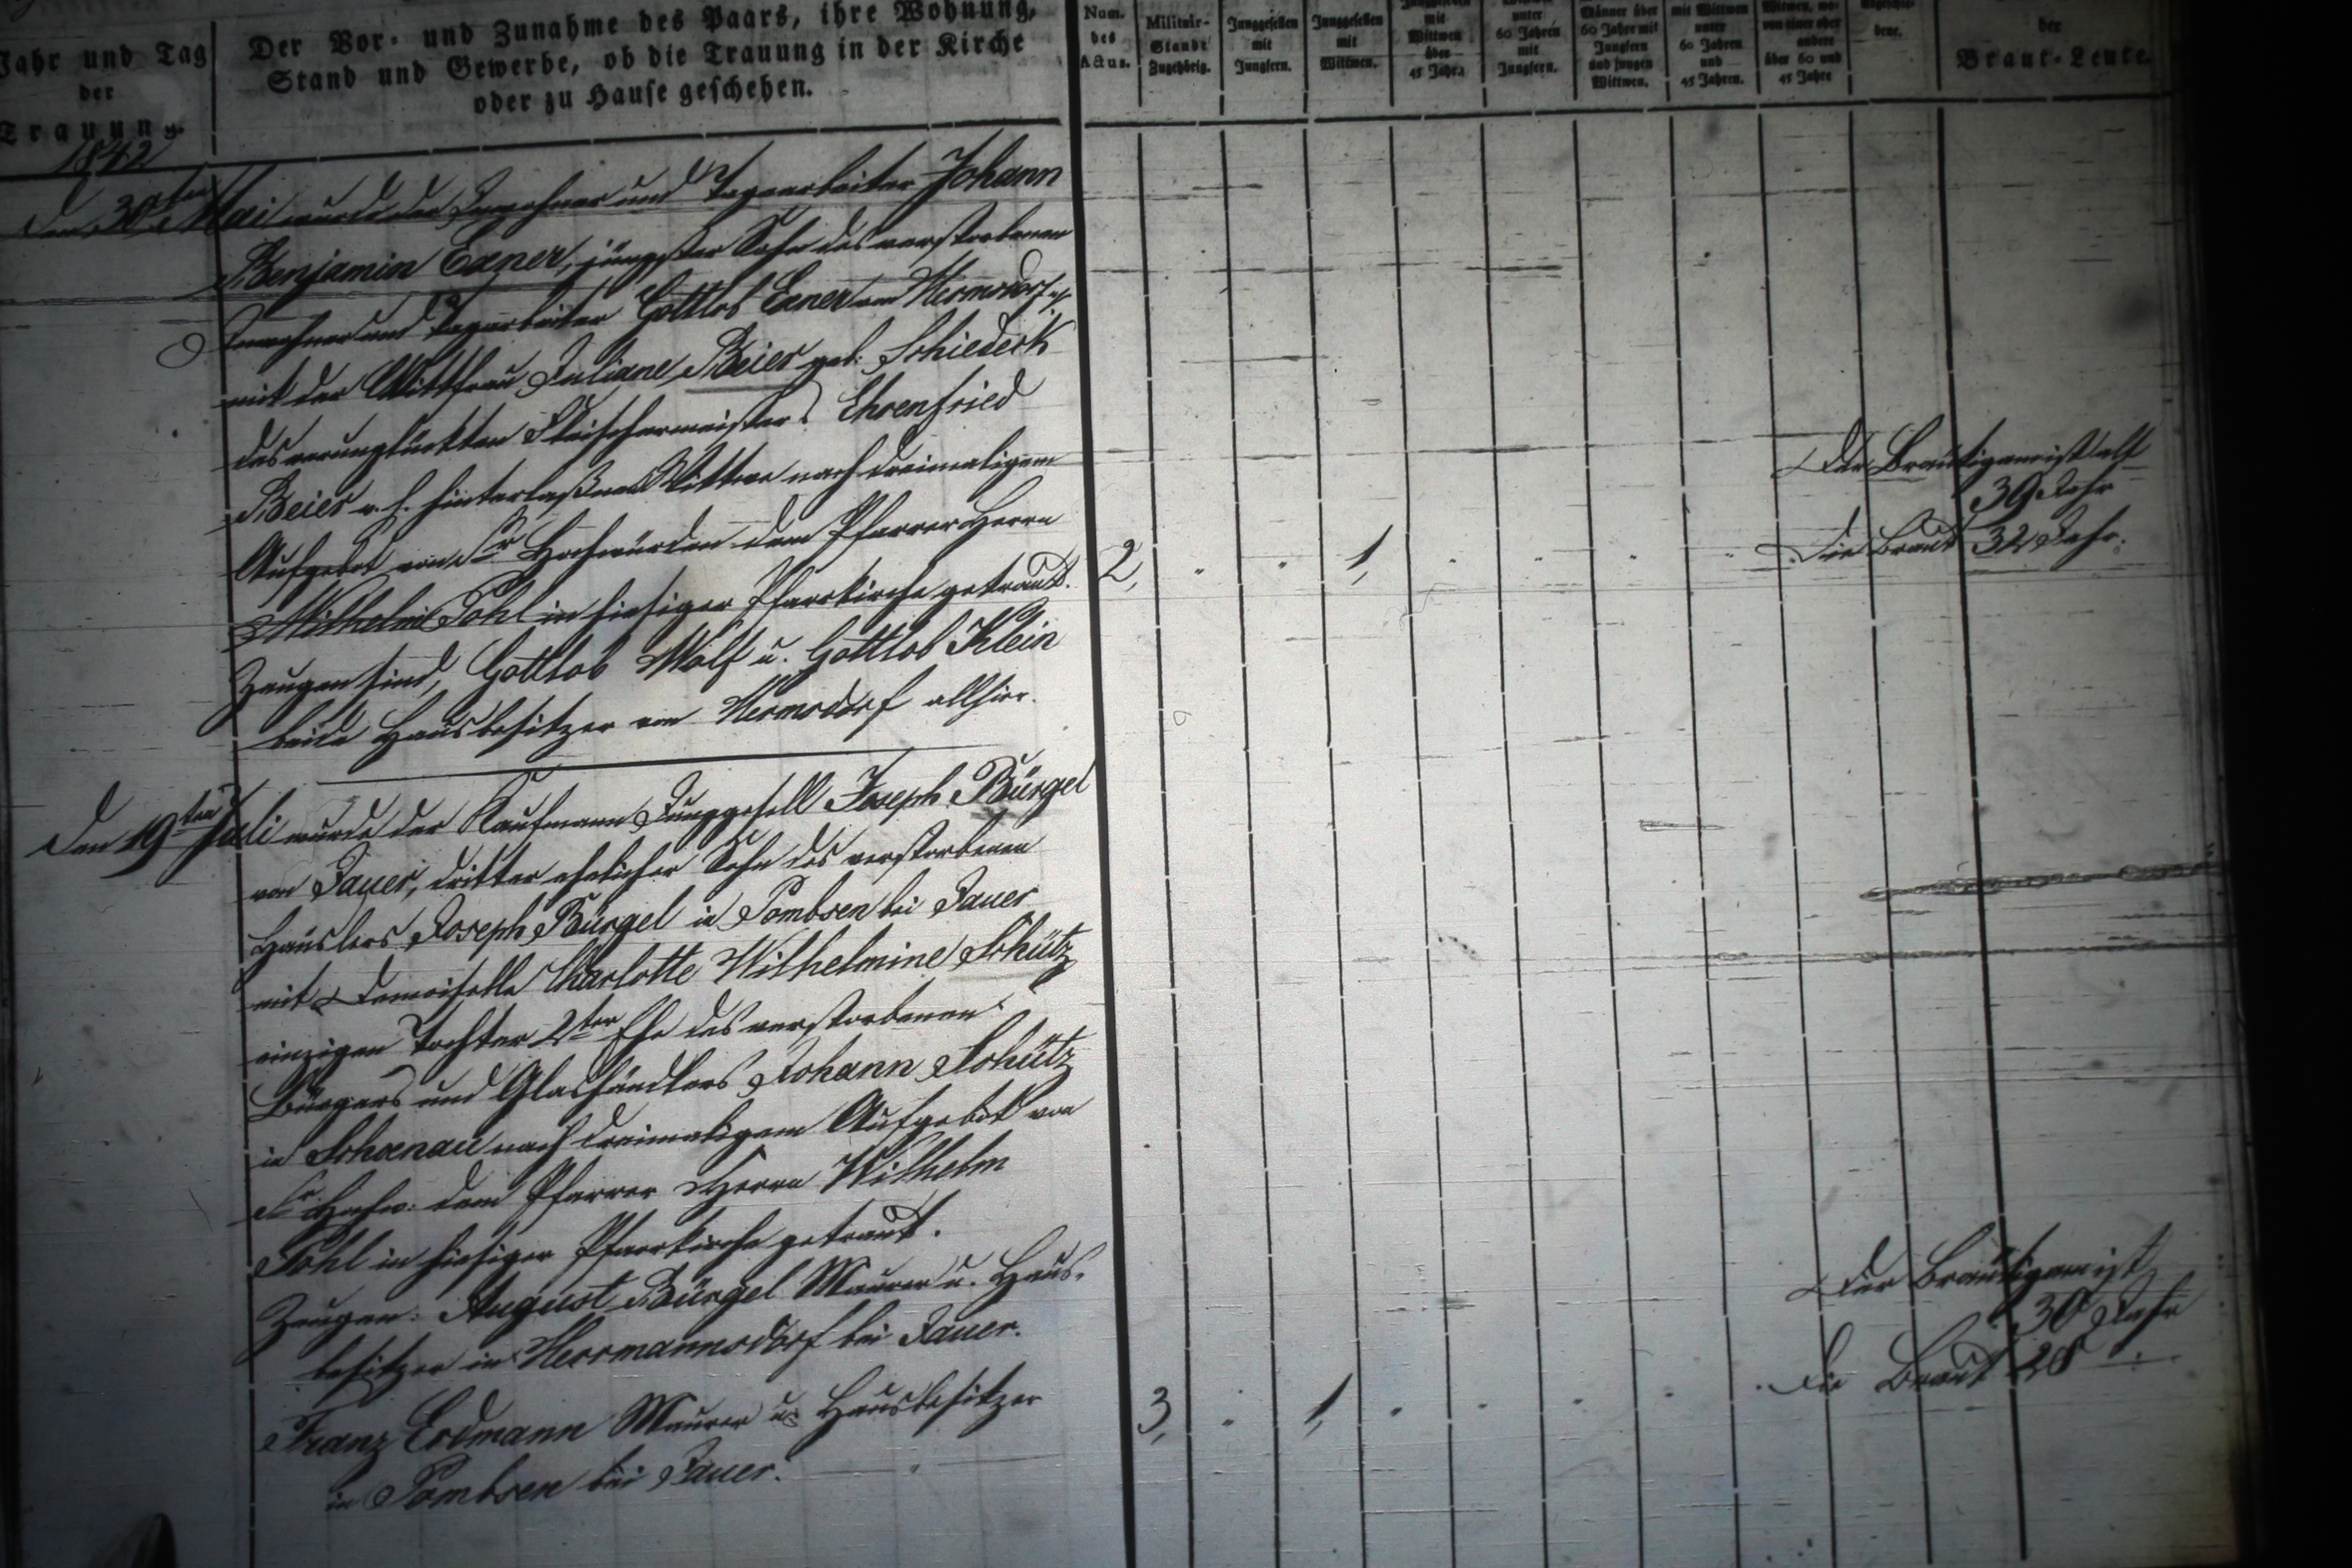 Jahr und Tag
der
Trauung.
Der Vor- und Zunahme des Paars, ihre Wohnung,
Stand und Gewerbe, ob die Trauung in der Kirche
oder zu Hause geschehen.
Num.
des
Actus.
Militair-
Stande
Zugehörig.
Junggesellen
mit
Jungfern.
Junggesellen
mit
Wittwen.
mit
Wittwen
über
45 Jahr.
unter
60 Jahren
mit
Jungfern.
Männer über
60 Jahr mit
Jungfern
und jungen
Wittwen.
mit Wittwen
unter
60 Jahren
und
45 Jahren.
Witwen, wo-
von einer oder
andere
über 60 und
45 Jahr
der
Braut-Leute.
1842
Den 30ten Mai wurde der Inwohner und Tagearbeiter Johann
Benjamin Exner, jüngster Sohn des verstorbenen
Inwohner und Tagarbeiter Gottlob Exner von Hermsdorf
mit der Wittfrau Juliane Beier geb: Schiederk
des verunglückten Fleischermeisters Ehrenfried
Beier v. h. hinterlaßene Wittwe nach dreimaligem
Aufgebot von Sr Hochwürden dem Pfarrer Herrn
Wilhelm Pohl in hiesiger Pfarrkirche getraut.
Zeugen sind, Gottlob Wolf u. Gottlob Klein
beide Hausbesitzer von Hermsdorf allhier.
2, 1,
Der Bräutigam ist alt
39 Jahr
Die Braut 32 Jahr.
Den 19ten Juli wurde der Kaufmann Junggesell Joseph Bürgel
von Jauer, dritter ehelicher Sohn des verstorbenen
Häuslers Joseph Bürgel in Pombsen bei Jauer
mit Demoiselle Charlotte Wilhelmine Schütz
einzigen Tochter 2ter Ehe des verstorbenen
Bürgers und Glashändlers Johann Schütz
in Schoenau nach dreimaligem Aufgebot von
Sr Hochw: dem Pfarrer Herrn Wilhelm
Pohl in hiesiger Pfarrkirche getraut.
Zeugen: August Bürgel Maurer u. Haus-
besitzer in Herrmannsdorf bei Jauer.
Franz Erdmann Maurer u. Hausbesitzer
in Pombsen bei Jauer.
3, 1,
Der Bräutigam ist
30 Jahr
Die Braut 28